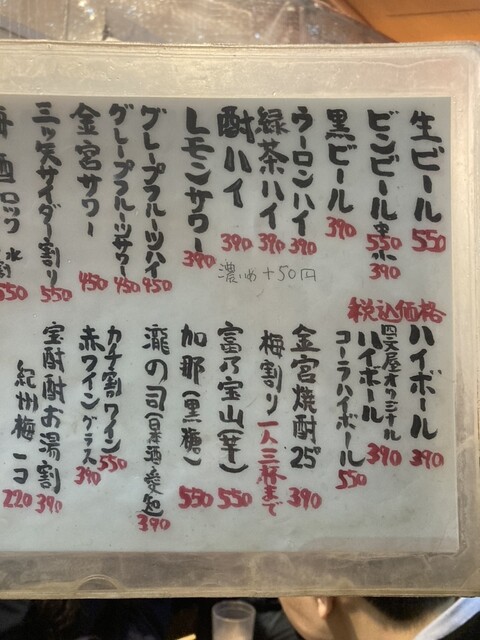 生ビール 550
ビンビール 中 550 小 390
黒ビール 390
ウーロンハイ 390
緑茶ハイ 390
酎ハイ 390
濃いめ +50円
レモンサワー 390
グレープフルーツハイ 450
グレープフルーツサワー 450
金宮サワー 450
三ツ矢サイダー割り 550
酒 ロック 水割 550
税込価格
ハイボール 390
四文屋オリジナル
ハイボール 390
コーラハイボール 550
金宮焼酎25° 390
梅割り 一人三杯まで
富乃宝山(芋) 550
加那(黒糖) 550
瀧の司(日本酒・愛知) 390
カチ割ワイン 550
赤ワイン グラス 390
宝酎酎お湯割 390
紀州梅一コ 220